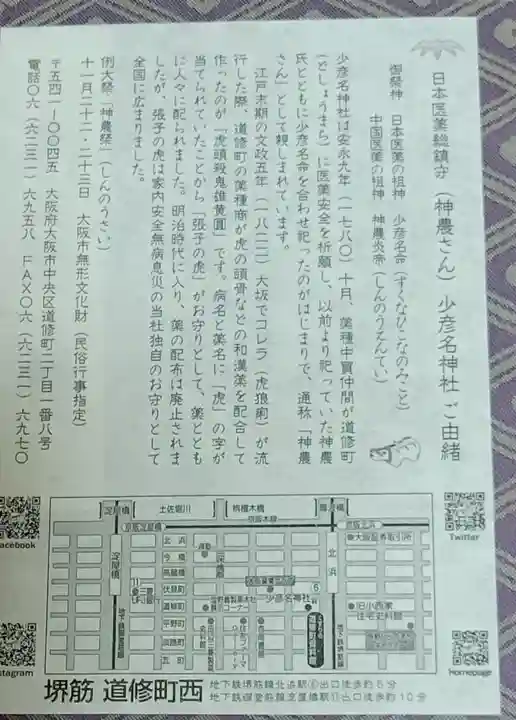 日本医薬総鎮守（神農さん）少彦名神社 ご由緒
御祭神　日本医薬の祖神　少彦名命（すくなひこなのみこと）
中国医薬の祖神　神農炎帝（しんのうえんてい）
少彦名神社は安永九年（一七八〇）十月、薬種中買仲間が道修町
（どしょうまち）に医薬安全を祈願し、以前より祀っていた神農
氏とともに少彦名命を合わせ祀ったのがはじまりで、通称「神農
さん」として親しまれています。
江戸末期の文政五年（一八二二）大坂でコレラ（虎狼痢）が流
行した際、道修町の薬種商が虎の頭骨などの和漢薬を配合して
作ったのが「虎頭殺鬼雄黄圓」です。病名と薬名に「虎」の字が
当てられていたことから「張子の虎」がお守りとして、薬ととも
に人々に配られました。明治時代に入り、薬の配布は廃止されま
したが、張子の虎は家内安全無病息災の当社独自のお守りとして
全国に広まりました。
例大祭「神農祭」（しんのうさい）
十一月二十二・二十三日　大阪市無形文化財（民俗行事指定）
〒五四一ー〇〇四五　大阪府大阪市中央区道修町二丁目一番八号
電話〇六（六二三一）六九五八　FAX〇六（六二三一）六九七〇
淀屋橋
土佐堀川
栴檀木橋
難波橋
京阪淀屋橋
京阪本線
京阪北浜
北浜
大阪証券取引所
今橋
高麗橋
伏見町
道修町
平野町
淡路町
瓦町
淀屋橋
北浜
三菱UFJ
少彦名神社
旧小西家
住宅史料館
facebook
Instagram
Twitter
Homepage
堺筋 道修町西
地下鉄堺筋線北浜駅⑥出口徒歩約5分
地下鉄御堂筋線淀屋橋駅⑪出口徒歩約10分